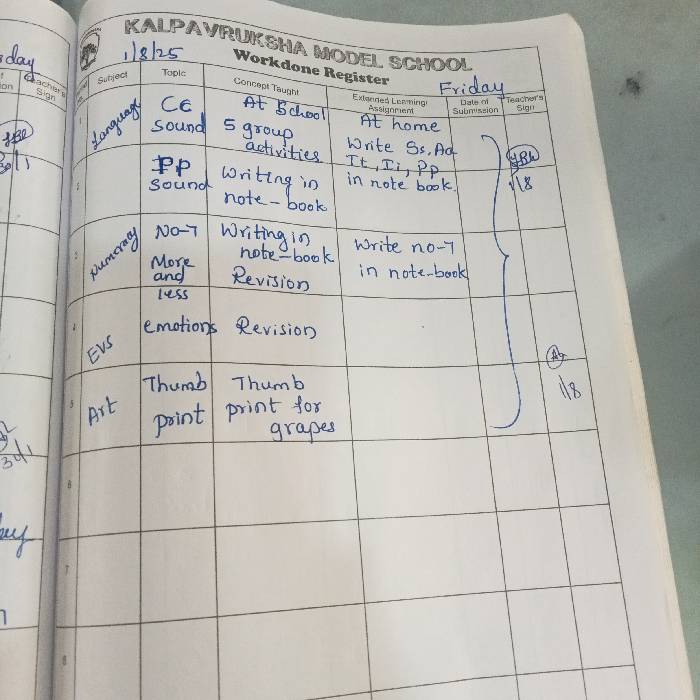 KALPAVRUKSHA MODEL SCHOOL
Workdone Register
1/8/25
Friday
Subject Topic Concept Taught Extended Learning/ Assignment Date of Submission Teacher's Sign
1 Language
sound
At School
5 group
activities
At home
Write Ss, Aa
It, Ii, Pp
in note book.
2
PP
sound
Writing in
note-book
1/8
3 Numeracy
No-7
More
and
less
Writing in
note-book
Revision
Write no-7
in note-book
4 EVS
emotions
Revision
5 Art
Thumb
print
Thumb
print for
grapes
1/8
6
7
8
Teacher's
Sign